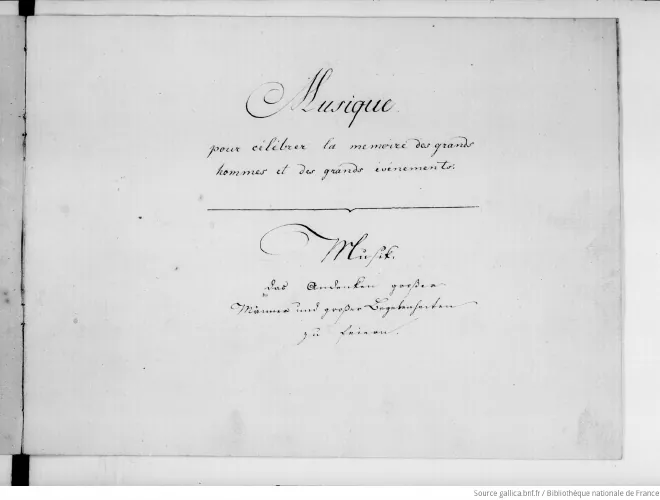 Musique
pour célébrer la memoire des grands
hommes et des grands événements.
Musik.
das Andenken großer
Männer und großer Begebenheiten
zu feiern.
Source gallica.bnf.fr / Bibliothèque nationale de France